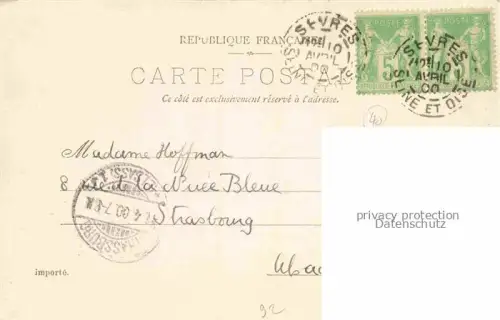 RÉPUBLIQUE FRANÇAISE
CARTE POSTALE
Ce côté est exclusivement réservé à l'adresse.
POSTE
5
SÈVRES
10
AVRIL
00
SEINE ET OISE
40
Madame Hoffman
8 rue de la Nuée Bleue
Strasbourg
privacy protection
Datenschutz
4.00.7-8V.
importé.
92